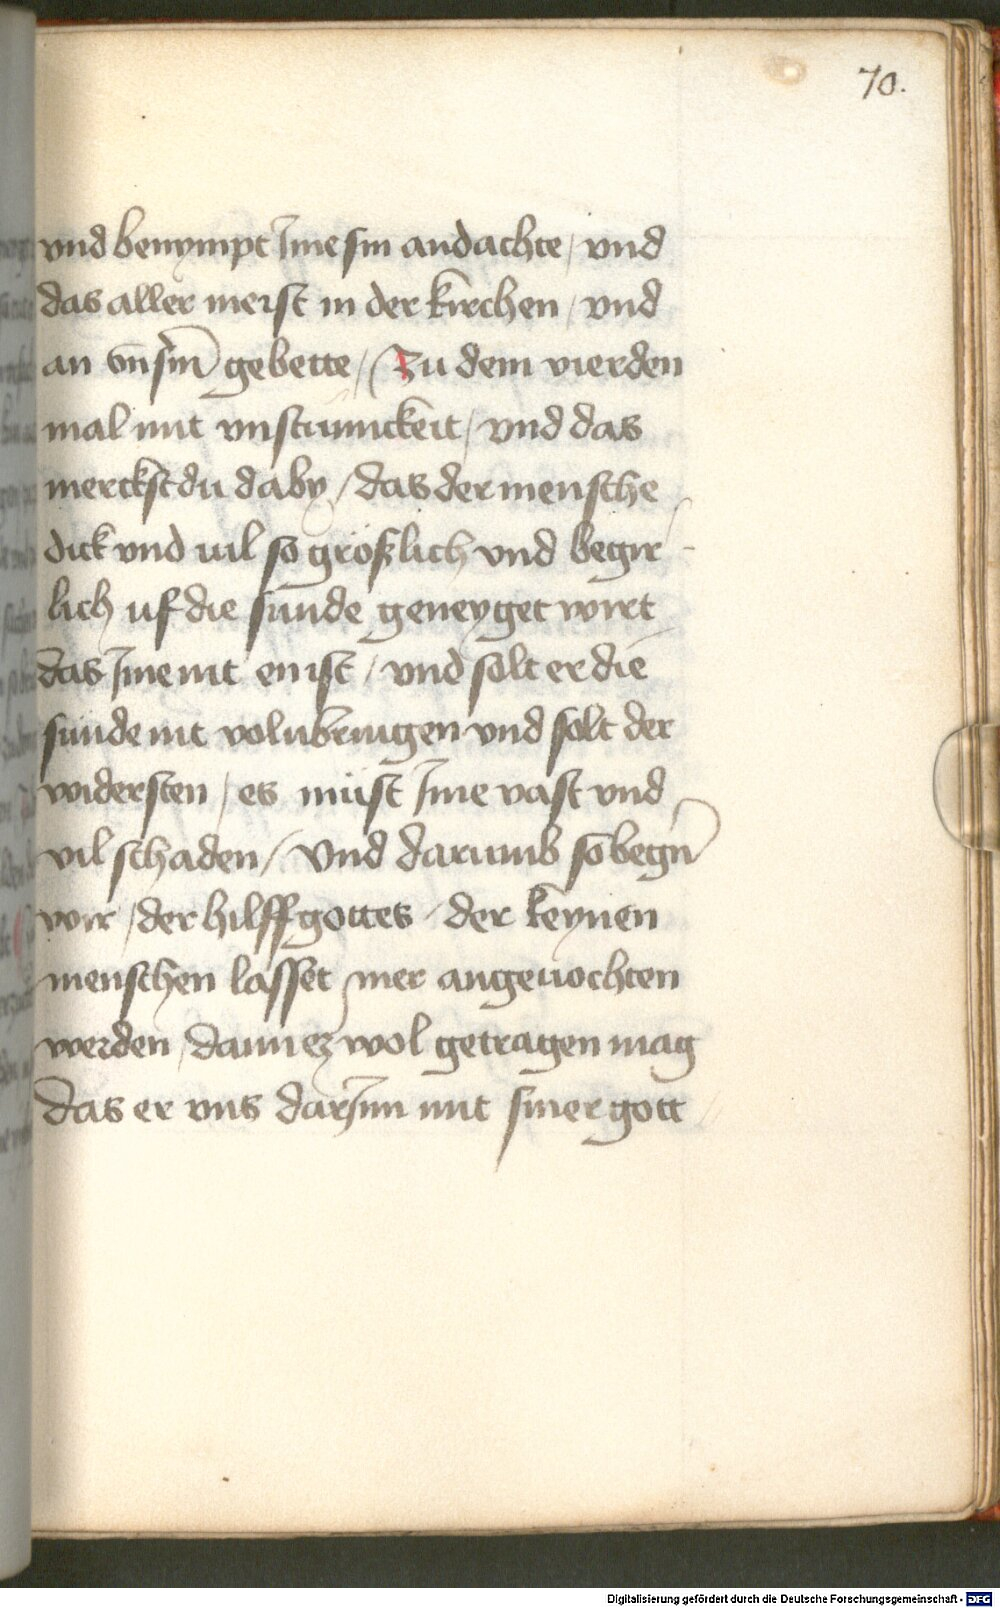 70.
vnd benympt Jme sin andachte / vnd
das aller meist in der kirchen / vnd
an gebette / Zu dem vierden
mal mit vnstumickeit / vnd das
merckst du daby / das der mensche
dick vnd uil so größlich vnd begir-
lich uf die sunde geneyget wirt
das Jme nit en ist / vnd solt er die
sunde nit volnbringen vnd solt der
widersten / es müst Jme vast vnd
vil schaden / Vnd darumb so
wir / der hilff gottes / der keynen
menschen lasset mer angeuochten
werden / dann ez wol getragen mag
das er vns darJnn mit siner gott
Digitalisierung gefördert durch die Deutsche Forschungsgemeinschaft - DFG